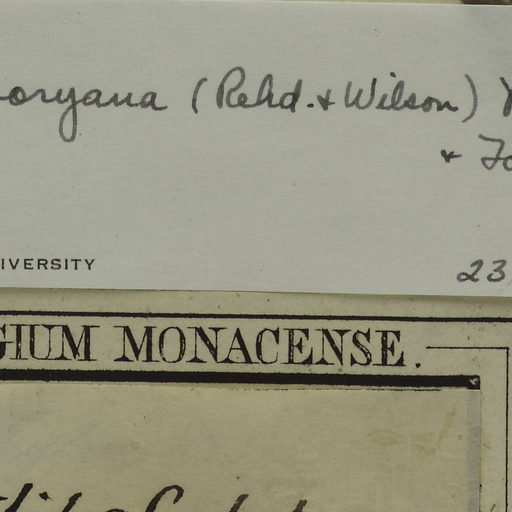 oryana (Rehd. & Wilson) Y
& To
IVERSITY
23
GIUM MONACENSE.